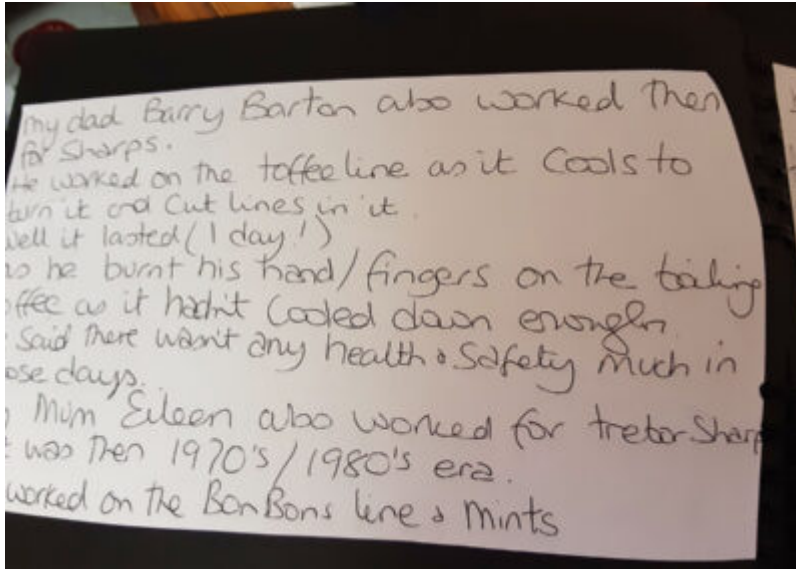 my dad Barry Barton also worked then
for Sharps.
He worked on the toffee line as it Cools to
turn it and Cut lines in it.
Well it lasted (1 day!)
as he burnt his hand/fingers on the boiling
offee as it hadn't Cooled down enough
Said there wasn't any health & Safety much in
ose days.
Mum Eileen also worked for trebor Sharp
t was then 1970's/1980's era.
worked on the BonBons line & Mints